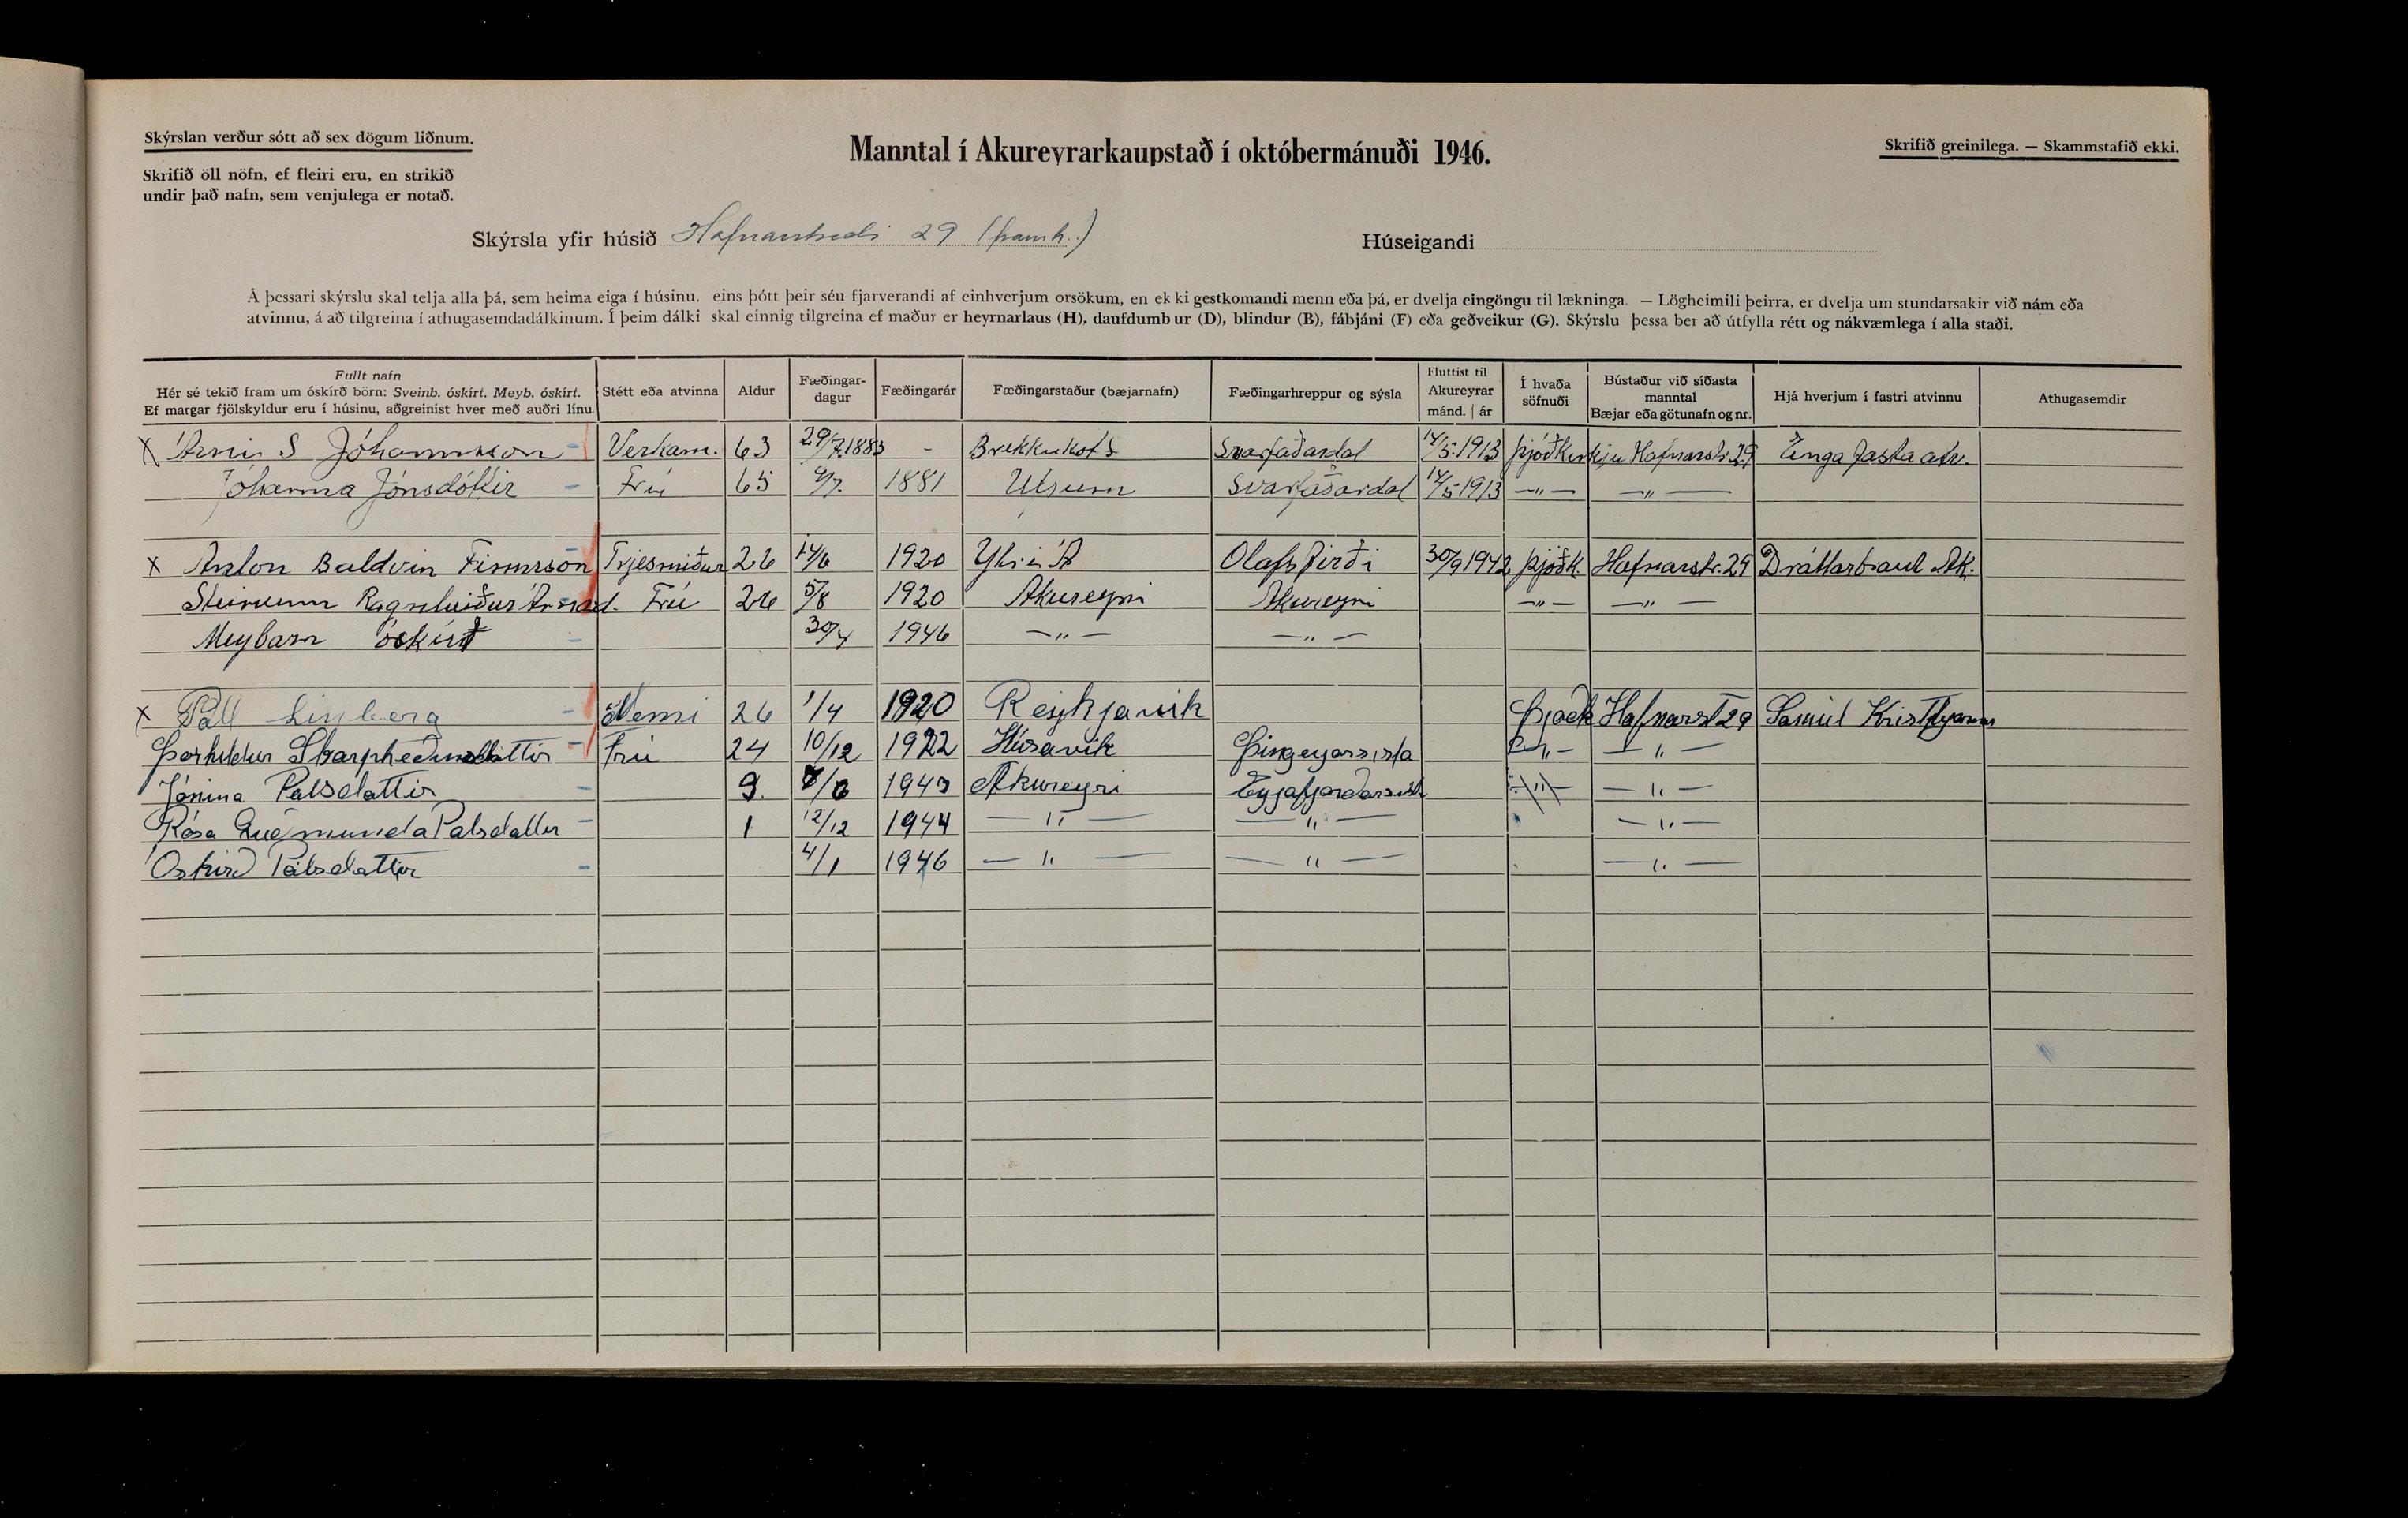 Skýrslan verður sótt að sex dögum liðnum.
Skrifið öll nöfn, ef fleiri eru, en strikið
undir það nafn, sem venjulega er notað.
Manntal í Akureyrarkaupstað í októbermánuði 1946.
Skrifið greinilega. — Skammstafið ekki.
Skýrsla yfir húsið Hafnarstræti 29 (framh.) Húseigandi
Á þessari skýrslu skal telja alla þá, sem heima eiga í húsinu, eins þótt þeir séu fjarverandi af einhverjum orsökum, en ekki gestkomandi menn eða þá, er dvelja eingöngu til lækninga. — Lögheimili þeirra, er dvelja um stundarsakir við nám eða
atvinnu, á að tilgreina í athugasemdadálkinum. Í þeim dálki skal einnig tilgreina ef maður er heyrnarlaus (H), daufdumbur (D), blindur (B), fábjáni (F) eða geðveikur (G). Skýrslu þessa ber að útfylla rétt og nákvæmlega í alla staði.
Fullt nafn
Hér sé tekið fram um óskírð börn: Sveinb. óskírt. Meyb. óskírt.
Ef margar fjölskyldur eru í húsinu, aðgreinist hver með auðri línu.
Stétt eða atvinna
Aldur
Fæðingar-
dagur
Fæðingarár
Fæðingarstaður (bæjarnafn)
Fæðingarhreppur og sýsla
Fluttist til
Akureyrar
mánd. | ár
Í hvaða
söfnuði
Bústaður við síðasta
manntal
Bæjar eða götunafn og nr.
Hjá hverjum í fastri atvinnu
Athugasemdir
X Árni S Jóhannsson - Verkam. 63 29/7.1883 - Brekkukoti Svarfaðardal 14/5.1913 Þjóðkirkju Hafnarstr. 29 Enga fasta atv.
Jóhanna Jónsdóttir - Frú 65 9/7. 1881 Svarfaðardal 14/5 1913 —"— —"—
X Anton Baldvin Finnsson Trjesmiður 26 14/6 1920 Ytri-Á Ólafsfirði 30/9 1942 Þjóðk. Hafnarstr. 29 Dráttarbraut Ak.
Steinunn Ragnheiður Árnad. Frú 26 5/8 1920 Akureyri Akureyri —"— —"—
Meybarn óskírt - 30/4 1946 —"— —"—
X Páll Línberg - Nemi 26 1/4 1920 Reykjavík Þjóðk Hafnarst 29
Þorhildur Skarphéðinsdóttir - Frú 24 10/12 1922 Húsavík Þingeyarsísla —"— —"—
Jónína Palsdattir - 3. 7/6 1943 Akureyri Eyjafjarðarsísl —"— —"—
Rósa Guðmunda Palsdatter - 1 12/12 1944 —"— —"— —"—
Óskírð Pálsdattir - 4/1 1946 —"— —"— —"—